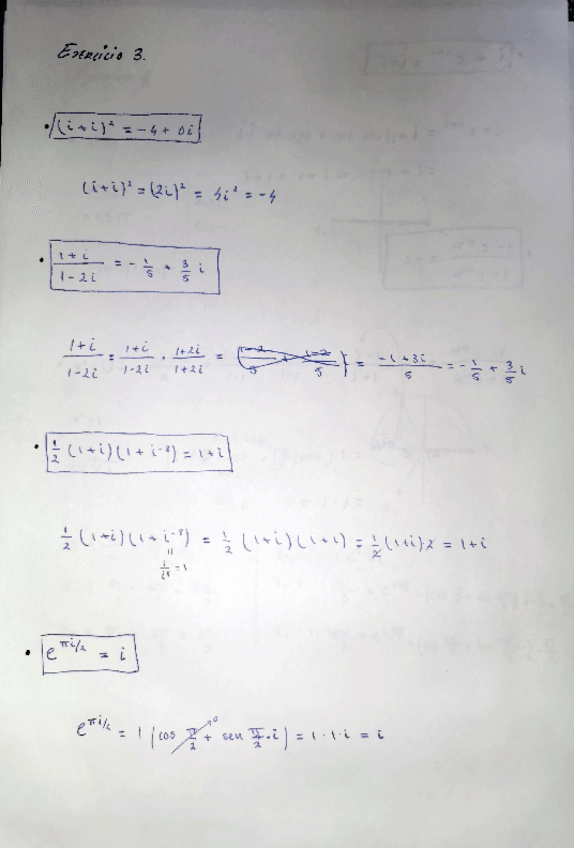 Exercicio 3.
• (i+i)² = -4 + 0i
(i+i)² = (2i)² = 4i² = -4
• \frac{1+i}{1-2i} = -\frac{1}{5} + \frac{3}{5} i
\frac{1+i}{1-2i} = \frac{1+i}{1-2i} · \frac{1+2i}{1+2i} = \frac{-1+3i}{5} = -\frac{1}{5} + \frac{3}{5} i
• \frac{1}{2} (1+i)(1+i⁻⁸) = 1+i
\frac{1}{2} (1+i)(1+i⁻⁸) = \frac{1}{2} (1+i)(1+1) = \frac{1}{2} (1+i)·2 = 1+i
\frac{1}{i⁸} = 1
• e^{πi/2} = i
e^{πi/2} = 1 (cos \frac{π}{2} + sen \frac{π}{2}·i) = 1·1·i = i